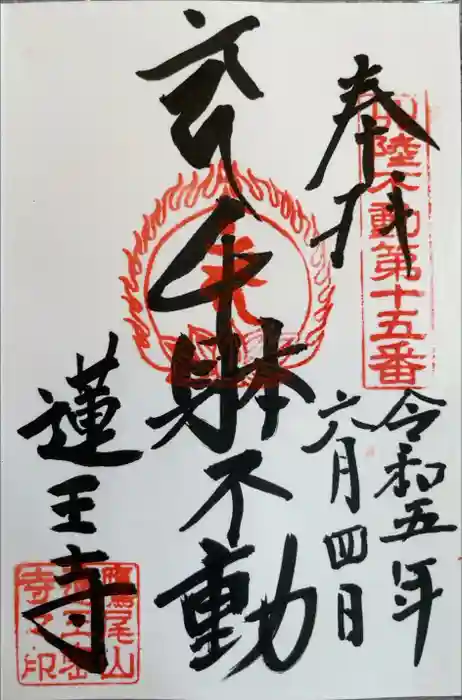 奉拝
陸不動第十五番
令和五年
六月四日
千躰不動
蓮王寺
鷹尾山
王密
寺之印